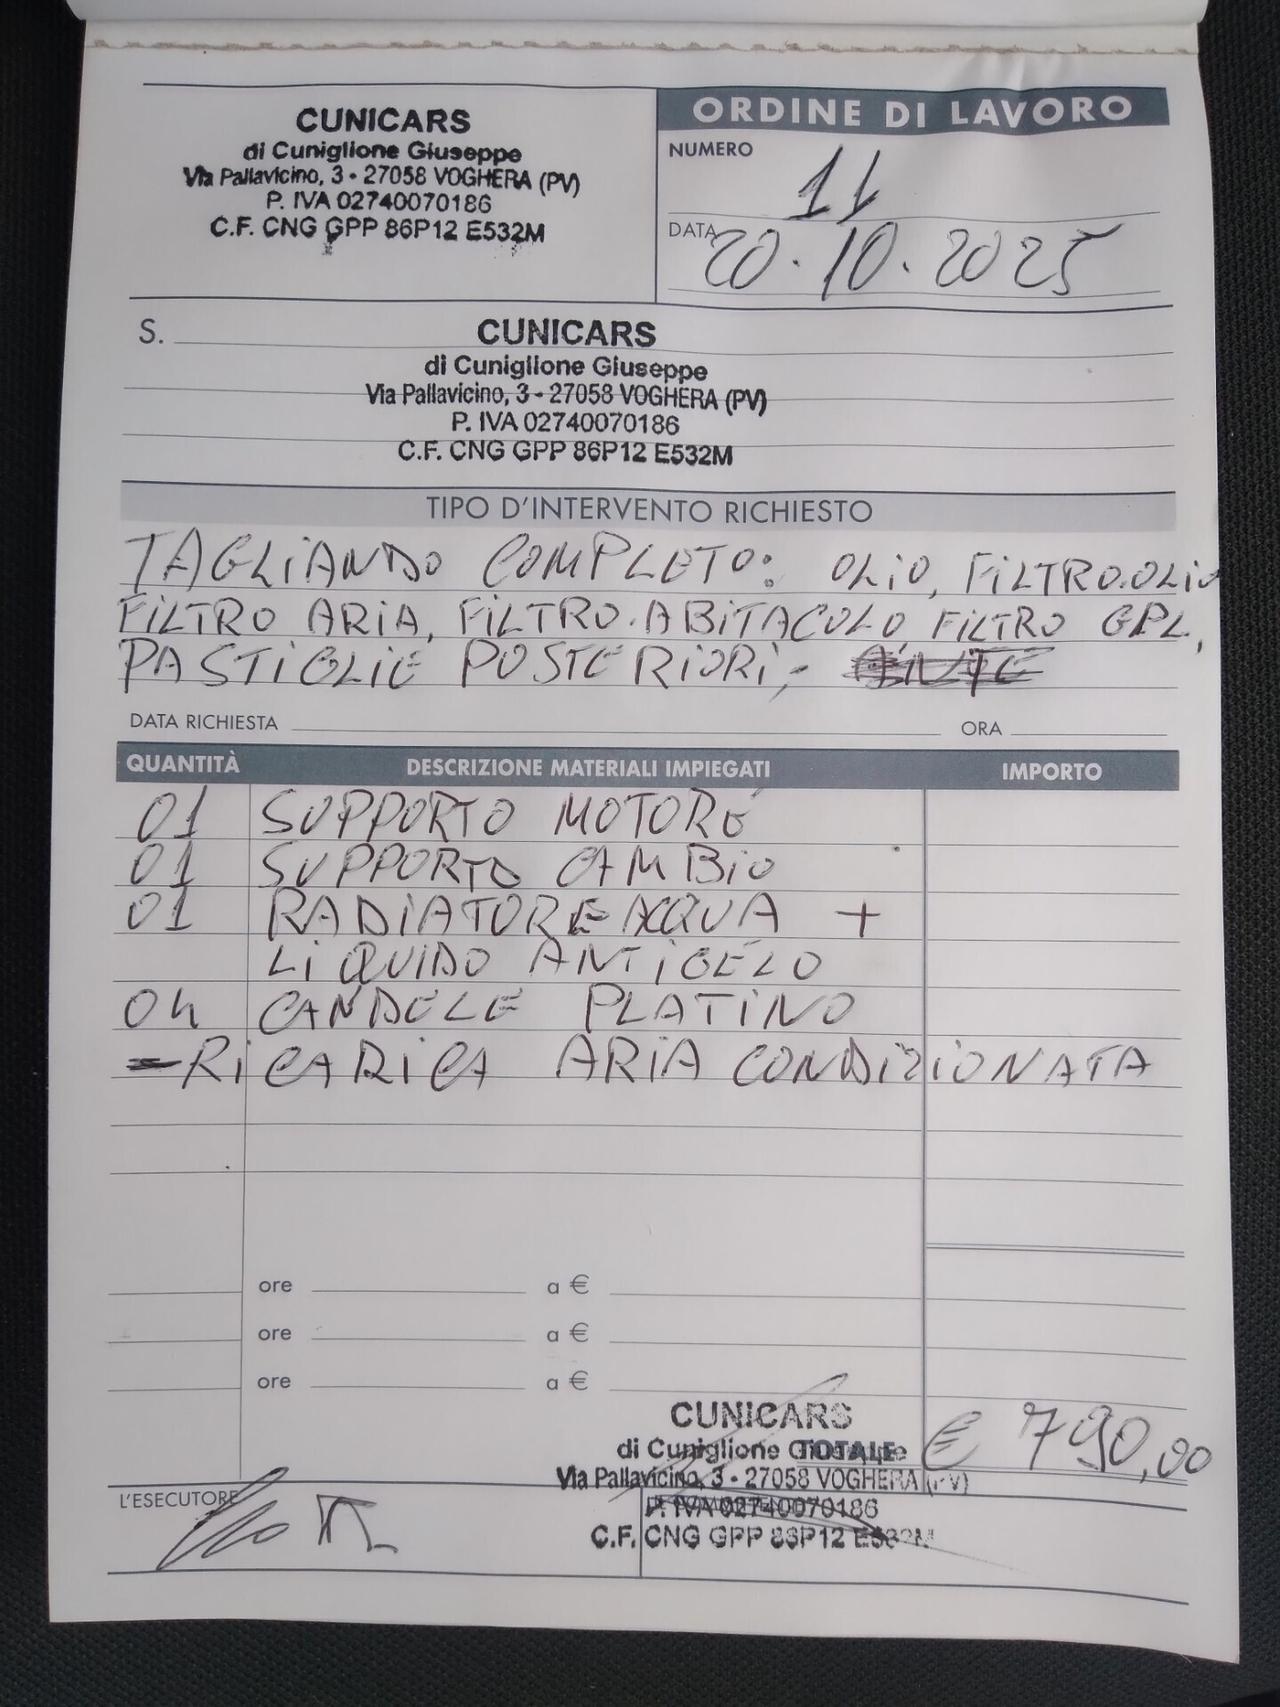 CUNICARS
di Cuniglione Giuseppe
Via Pallavicino, 3 - 27058 VOGHERA (PV)
P. IVA 02740070186
C.F. CNG GPP 86P12 E532M
ORDINE DI LAVORO
NUMERO 11
DATA 20.10.2025
S.
CUNICARS
di Cuniglione Giuseppe
Via Pallavicino, 3 - 27058 VOGHERA (PV)
P. IVA 02740070186
C.F. CNG GPP 86P12 E532M
TIPO D'INTERVENTO RICHIESTO
TAGLIANDO COMPLETO: OLIO, FILTRO.OLIO
FILTRO ARIA, FILTRO.ABITACOLO FILTRO GPL,
PASTIGLIE POSTERIORI,-
DATA RICHIESTA ORA
QUANTITÀ DESCRIZIONE MATERIALI IMPIEGATI IMPORTO
01 SUPPORTO MOTORE
01 SUPPORTO CAMBIO
01 RADIATORE ACQUA +
LIQUIDO ANTIGELO
04 CANDELE PLATINO
-RICARICA ARIA CONDIZIONATA
ore a €
ore a €
ore a €
CUNICARS
di Cuniglione
TOTALE € 790,00
Via Pallavicino, 3 - 27058 VOGHERA (PV)
P. IVA 02740070186
C.F. CNG GPP 86P12 E532M
L'ESECUTORE